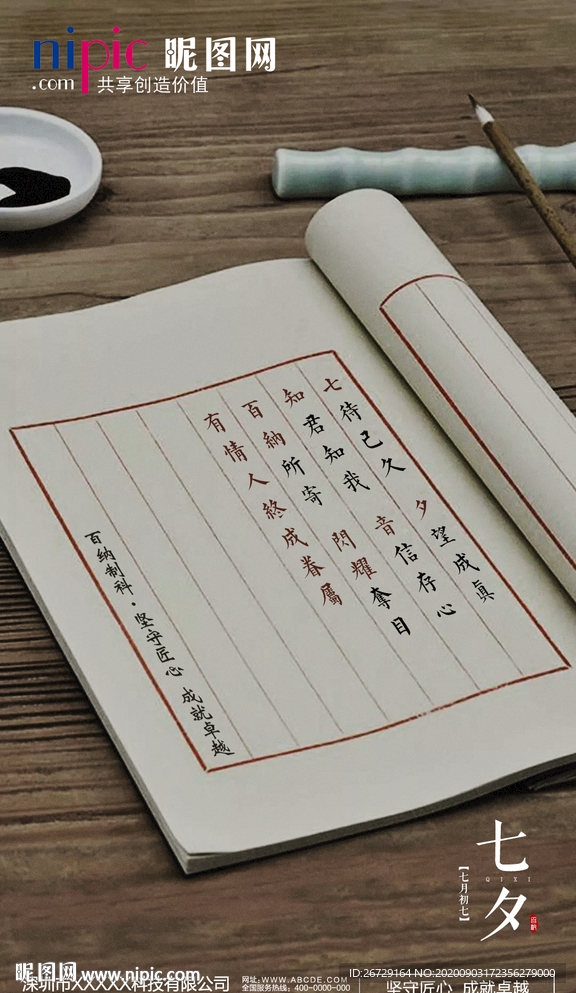 nipic 昵图网
.com 共享创造价值
七待己久 夕望成真
知君知我 音信存心
百納所寄 閃耀奪目
有情人終成眷屬
百纳制科·坚守匠心 成就卓越
七夕
QIXI
【七月初七】
昵图网 www.nipic.com
ID:26729164 NO:20200903172356279000
深圳市XXXXX科技有限公司
网址:WWW.ABCDE.COM
全国服务热线:400-0000-000
坚守匠心 成就卓越